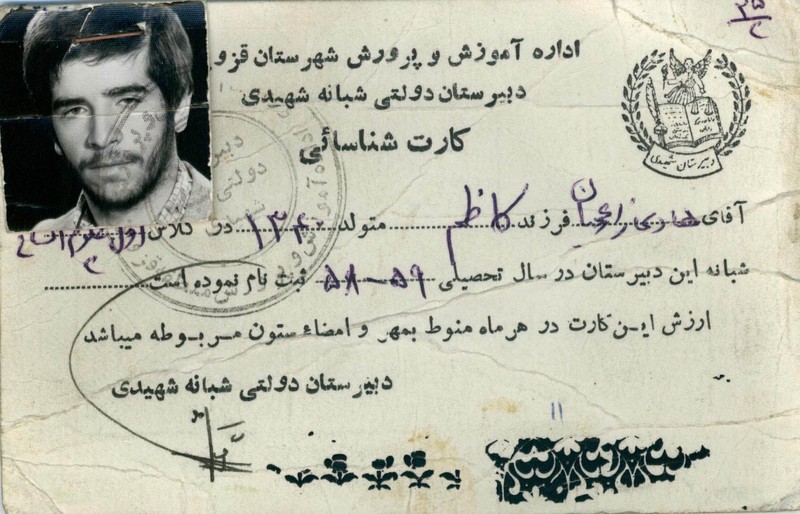 ۳۵
اداره آموزش و پرورش شهرستان قزو
دبیرستان دولتی شبانه شهیدی
کارت شناسائی
دبیرستان شهیدی
آقای هادی فرزند کاظم متولد ۱۳۴۰ در کلاس اول علوم
شبانه این دبیرستان در سال تحصیلی ۵۹-۵۸ ثبت نام نموده است
ارزش این کارت در هر ماه منوط بمهر و امضاء ستون مربوطه میباشد
دبیرستان دولتی شبانه شهیدی
۱۱